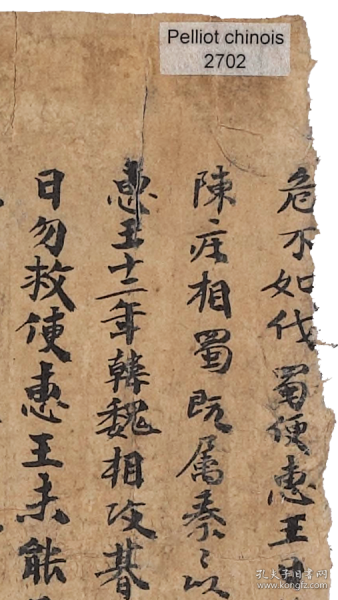 Pelliot chinois
2702
危不如伐蜀便惠王
陳〻疰相蜀既属秦〻以
惠王十二年韓魏相攻朞
日勿救便惠王未能
孔夫子旧书网